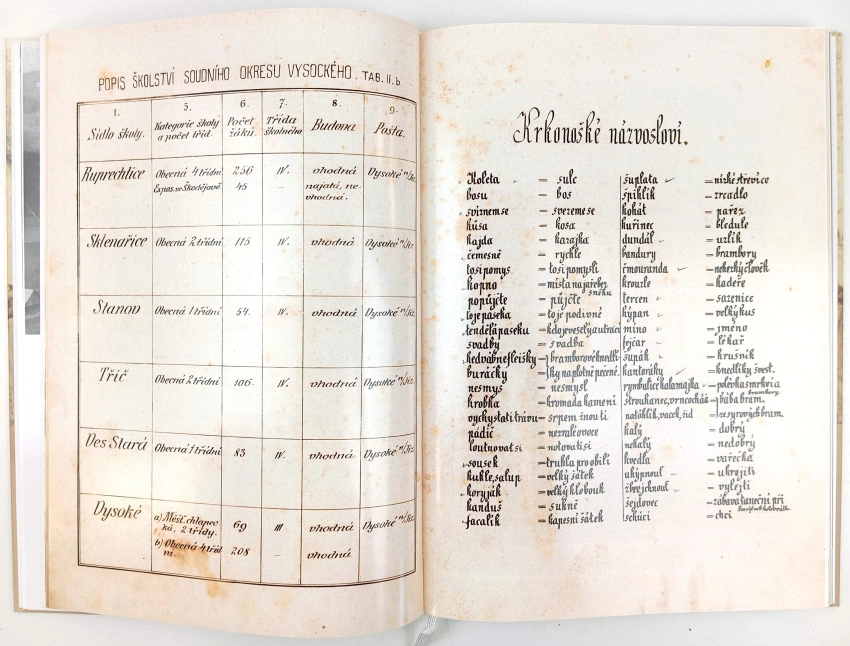 POPIS ŠKOLSTVÍ SOUDNÍHO OKRESU VYSOCKÉHO. TAB. II. b
1. 5. 6. 7. 8. 9.
Sídlo školy. Kategorie školy a počet tříd. Počet žáků. Třída školného Budova Pošta.
Ruprechtice Obecná 4 třídní 256 IV. vhodná Vysoké n/Jiz.
Expos. ve Škodějově 45 — najatá, nevhodná.
Sklenařice Obecná 2 třídní 115 IV. vhodná Vysoké n/Jiz.
Stanov Obecná 1 třídní 54. IV. vhodná Vysoké n/Jiz.
Tříč Obecná 2 třídní 106. IV. vhodná Vysoké n/Jiz.
Ves Stará Obecná 1 třídní 83 IV. vhodná Vysoké n/Jiz.
Vysoké a) Měšť. chlapecká, 2 třídy. 69 III vhodná Vysoké n/Jiz.
b) Obecná 4 tříd 208 — vhodná
Krkonošké názvosloví.
Koleta = sulc
bosu = bos
svirnemse = sveremese
kůsa = kosa
kajda = karajka
čemesně = rychle
tosipomys = tosi pomysli
kopno = místa na jaře bez sněhu
popůjčte = půjčte
toje paseka = to je podivné
tendělápaseku = kdo je veselý a utrací
svadby = svadba
kedvábnefleisky = bramborové knedlí.
buráčky = tky na plotně pečené.
nesmys = nesmysl
hrobka = hromada kamení
vychystati trávu = srpem žnouti
pádič = nezralé ovoce
loutnovat si = notovati si
sousek = truhla pro bílí
kukle, salup = velký šátek
koryják = velký klobouk
kanduš = sukně
facalík = kapesní šátek
šuplata = nízké střevíce
špiklík = zrcadlo
kohát = pařez
kuřinec = bledule
dundál = uzlík
bandury = brambory
čmouranda = nehezký člověk
krouzle = kadeře
tercen = sazenice
kýpan = velký kus
mino = jméno
lejčar = lékař
šupák = krušník
kantořiky = knedlíky švest.
rymbulice kalamajka = polévka s mrkvía brambory
stroukanec, vrncochák = bába bram.
natáklík, vacek, žid = ze syrových bram.
kalý = dobrý
nekalý = nedobrý
kvedla = vařečka
ukýpnouť = ukrojiti
žbrejchnouť = vylejti
šejdovec = zábava taneční při
schúci = chci